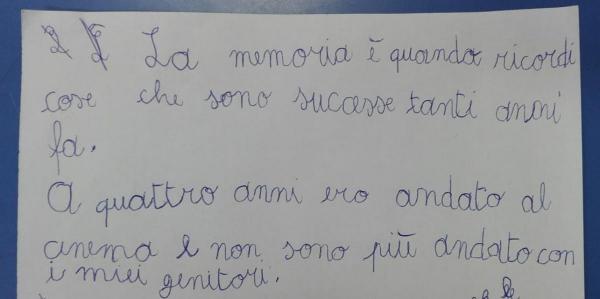 La memoria è quando ricordi
cose che sono successe tanti anni
fa.
A quattro anni ero andato al
cinema e non sono più andato con
i miei genitori.